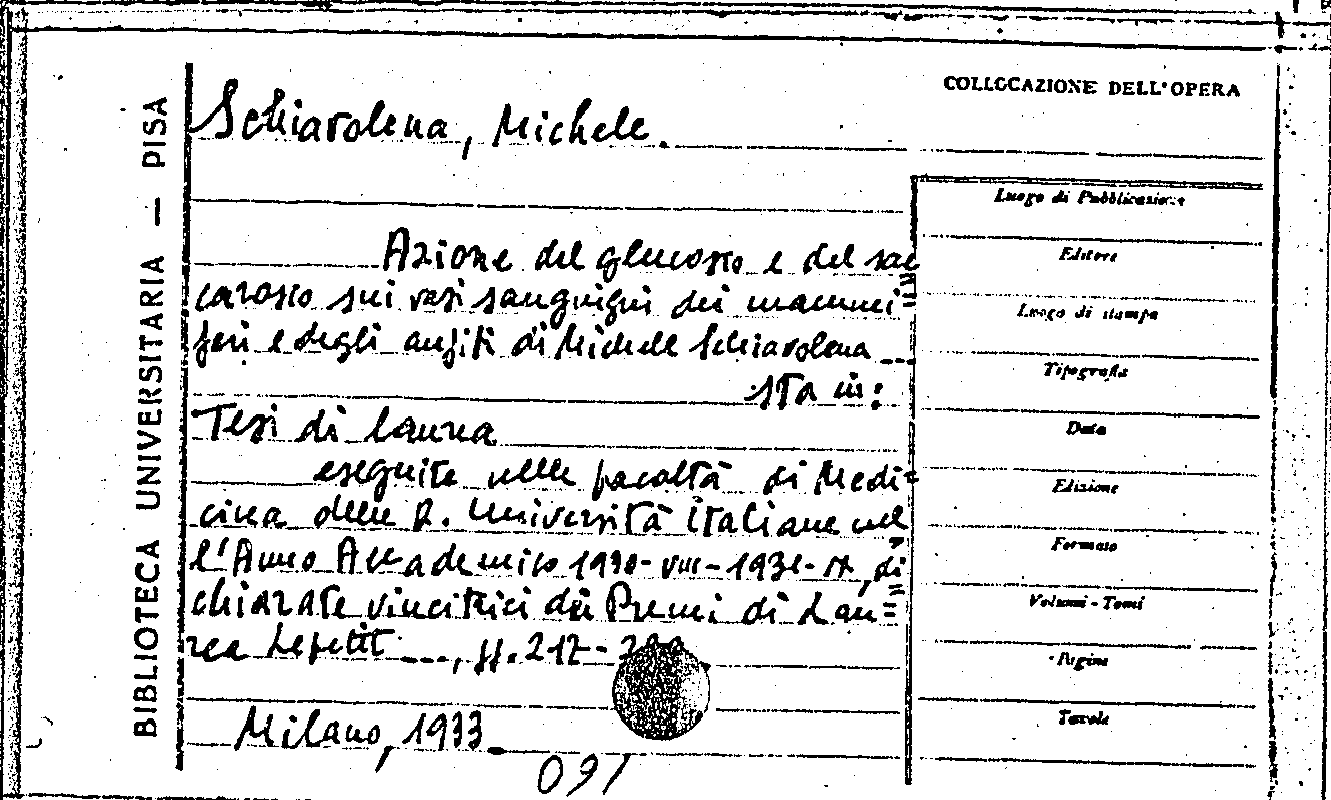 BIBLIOTECA UNIVERSITARIA — PISA
Schiarolena, Michele.
Azione del glucosio e del sac=
carosio sui vasi sanguigni dei mammi=
feri e degli anfibi di Michele Schiarolena ...
sta in:
Tesi di laurea
eseguite nelle facoltà di Medi=
cina delle R. Università italiane nel=
l'Anno Accademico 1930-VIII-1931-IX, di=
chiarate vincitrici dei Premi di Lau=
rea Lepetit ..., ff. 217-
Milano, 1933.
091
COLLOCAZIONE DELL'OPERA
Luogo di Pubblicazione
Editore
Luogo di stampa
Tipografia
Data
Edizione
Formato
Volumi - Tomi
Pagine
Tavole